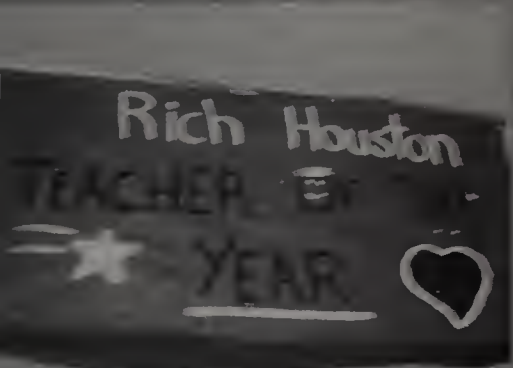 Rich Houston
TEACHER
YEAR